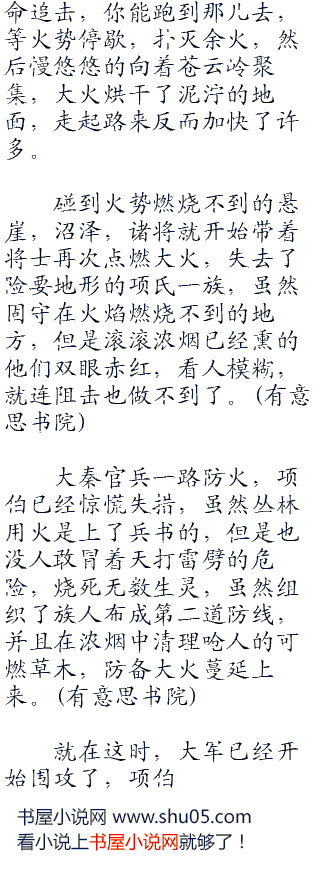 命追击，你能跑到那儿去，
等火势停歇，扑灭余火，然
后慢悠悠的向着苍云岭聚
集，大火烘干了泥泞的地
面，走起路来反而加快了许
多。
碰到火势燃烧不到的悬
崖，沼泽，诸将就开始带着
将士再次点燃大火，失去了
险要地形的项氏一族，虽然
固守在火焰燃烧不到的地
方，但是滚滚浓烟已经熏的
他们双眼赤红，看人模糊，
就连阻击也做不到了。(有意
思书院)
大秦官兵一路防火，项
伯已经惊慌失措，虽然丛林
用火是上了兵书的，但是也
没人敢冒着天打雷劈的危
险，烧死无数生灵，虽然组
织了族人布成第二道防线，
并且在浓烟中清理呛人的可
燃草木，防备大火蔓延上
来。(有意思书院)
就在这时，大军已经开
始围攻了，项伯
书屋小说网 www.shu05.com
看小说上书屋小说网就够了！